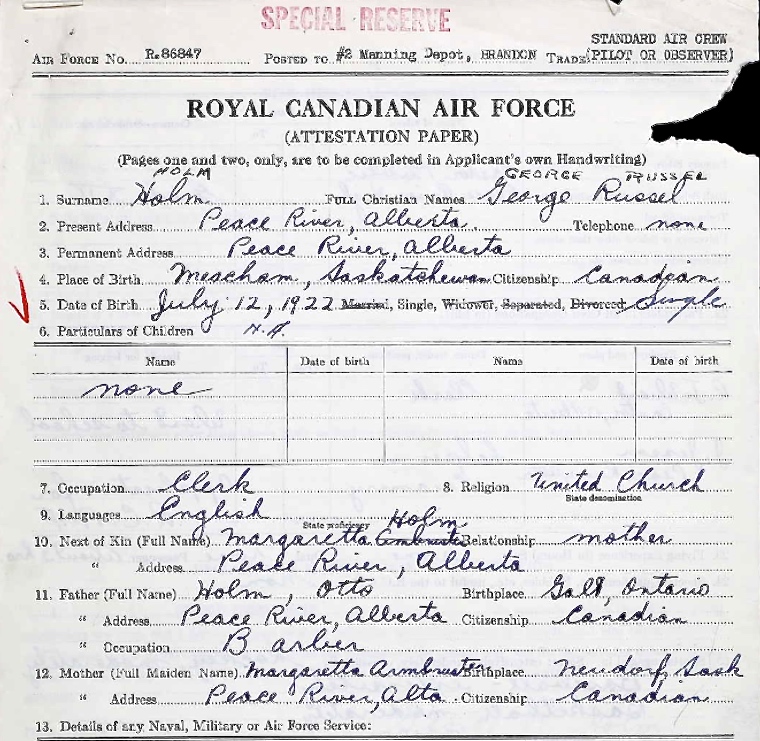 SPECIAL RESERVE
STANDARD AIR CREW
AIR FORCE NO. R.86847 POSTED TO #2 Manning Depot, BRANDON TRADE (PILOT OR OBSERVER)
ROYAL CANADIAN AIR FORCE
(ATTESTATION PAPER)
(Pages one and two, only, are to be completed in Applicant's own Handwriting)
HOLM GEORGE RUSSEL
1. Surname Holm FULL Christian Names George Russel
2. Present Address Peace River, Alberta. Telephone none
3. Permanent Address Peace River, Alberta
4. Place of Birth Meacham, Saskatchewan Citizenship Canadian
5. Date of Birth July 12, 1922 Married, Single, Widower, Separated, Divorced, Single
6. Particulars of Children N.A.
Name Date of birth Name Date of birth
none
7. Occupation Clerk 8. Religion United Church
State denomination
9. Languages English
State proficiency Holm
10. Next of Kin (Full Name) Margaretta Armbruster Relationship mother
" Address Peace River, Alberta
11. Father (Full Name) Holm, Otto Birthplace Galt, Ontario
" Address Peace River, Alberta Citizenship Canadian
" Occupation Barber
12. Mother (Full Maiden Name) Margaretta Armbruster Birthplace Neudorf, Sask
" Address Peace River, Alta. Citizenship Canadian
13. Details of any Naval, Military or Air Force Service: